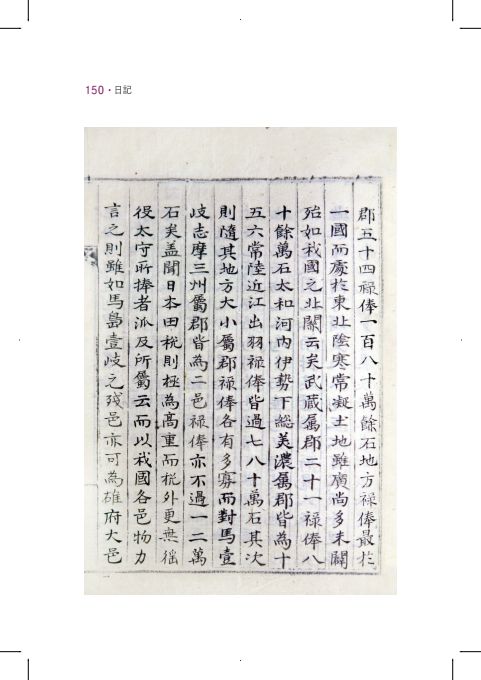 150 · 日記
郡五十四祿俸一百八十萬餘石地方祿俸最於
一國而處於東北陰寒常凝土地雖廣尚多未闢
殆如我國之北關云矣武藏属郡二十一祿俸八
十餘萬石太和河内伊勢下総美濃属郡皆為十
五六常陸近江出羽祿俸皆過七八十萬石其次
則隨其地方大小屬郡祿俸各有多寡而對馬壹
岐志摩三州屬郡皆為二邑祿俸亦不過一二萬
石矣盖聞日本田稅則極為高重而稅外更無徭
役太守所捧者派及所屬云而以我國各邑物力
言之則雖如馬島壹岐之殘邑亦可為雄府大邑